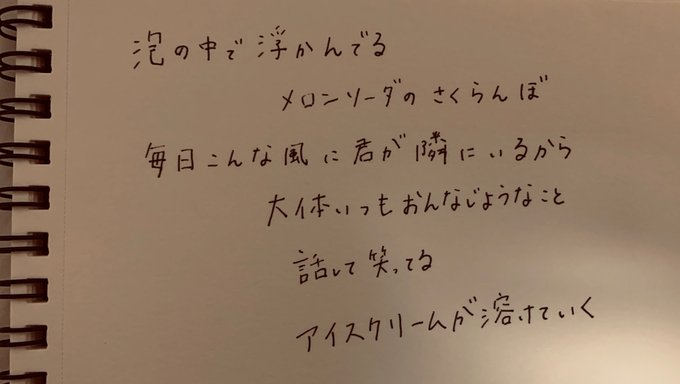 泡の中で浮かんでる
メロンソーダのさくらんぼ
毎日こんな風に君が隣にいるから
大体いつもおんなじようなこと
話して笑ってる
アイスクリームが溶けていく